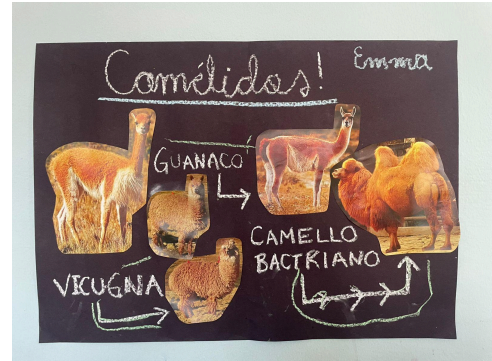 Camélidos!
Emma
GUANACO
CAMELLO
BACTRIANO
VICUGNA